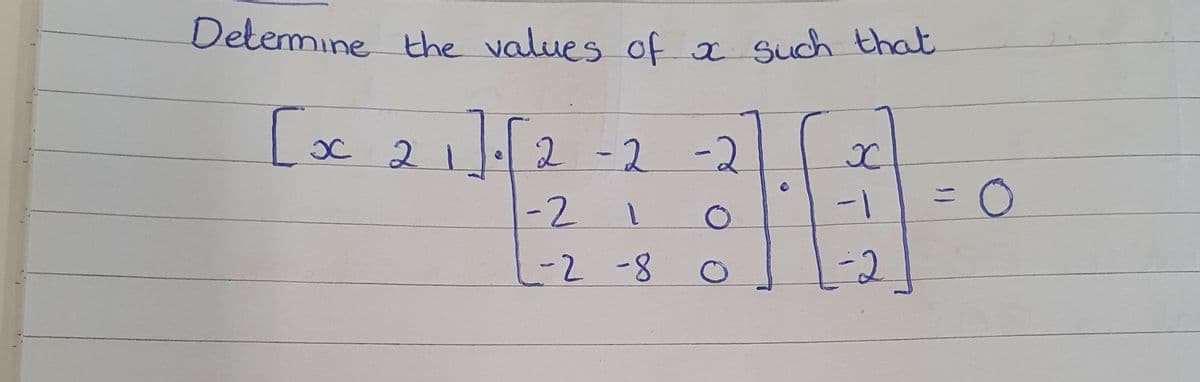 Determine the values of x such that
[x 2 1]·[2 -2 -2] · [x]
[-2 1 0] [-1] = 0
[-2 -8 0] [-2]